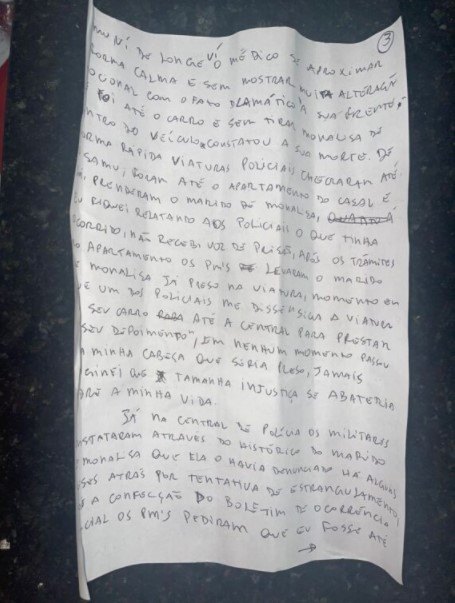 ③
VI DE LONGE O MÉDICO SE APROXIMAR
FORMA CALMA E SEM MOSTRAR MUITA ALTERAÇÃ
OCIONAL COM O FATO DRAMÁTICO A SUA FRENTE,
FOI ATÉ O CARRO E SEM TIRAR MONALISA DE
NTRO DO VEÍCULO, CONSTATOU A SUA MORTE. DE
ORMA RAPIDA VIATURAS POLICIAIS CHEGARAM ATÉ
SAMU, FORAM ATÉ O APARTAMENTO DO CASAL E
PRENDERAM O MARIDO DE MONALISA,
U FIQUEI RELATANDO AOS POLICIAIS O QUE TINHA
OCORRIDO, NÃO RECEBI VOZ DE PRISÃO, APÓS OS TRÂMITES
O APARTAMENTO OS PM'S LEVARAM O MARIDO
E MONALISA JÁ PRESO NA VIATURA, MOMENTO EM
UE UM DOS POLICIAIS ME DISSE "SIGA A VIATURA
SEU CARRO ATÉ A CENTRAL PARA PRESTAR
SEU DEPOIMENTO", EM NENHUM MOMENTO PASSOU
A MINHA CABEÇA QUE SERIA PRESO, JAMAIS
GINEI QUE TAMANHA INJUSTIÇA SE ABATERIA
BRE A MINHA VIDA.
JÁ NA CENTRAL DE POLÍCIA OS MILITARES
NSTATARAM ATRAVÉS DO HISTÓRICO DO MARIDO
MONALISA QUE ELA O HAVIA DENUNCIADO HÁ ALGUNS
SES ATRÁS POR TENTATIVA DE ESTRANGULAMENTO,
S A CONFECÇÃO DO BOLETIM DE OCORRÊNCIA
CIAL OS PM'S PEDIRAM QUE EU FOSSE ATÉ
→